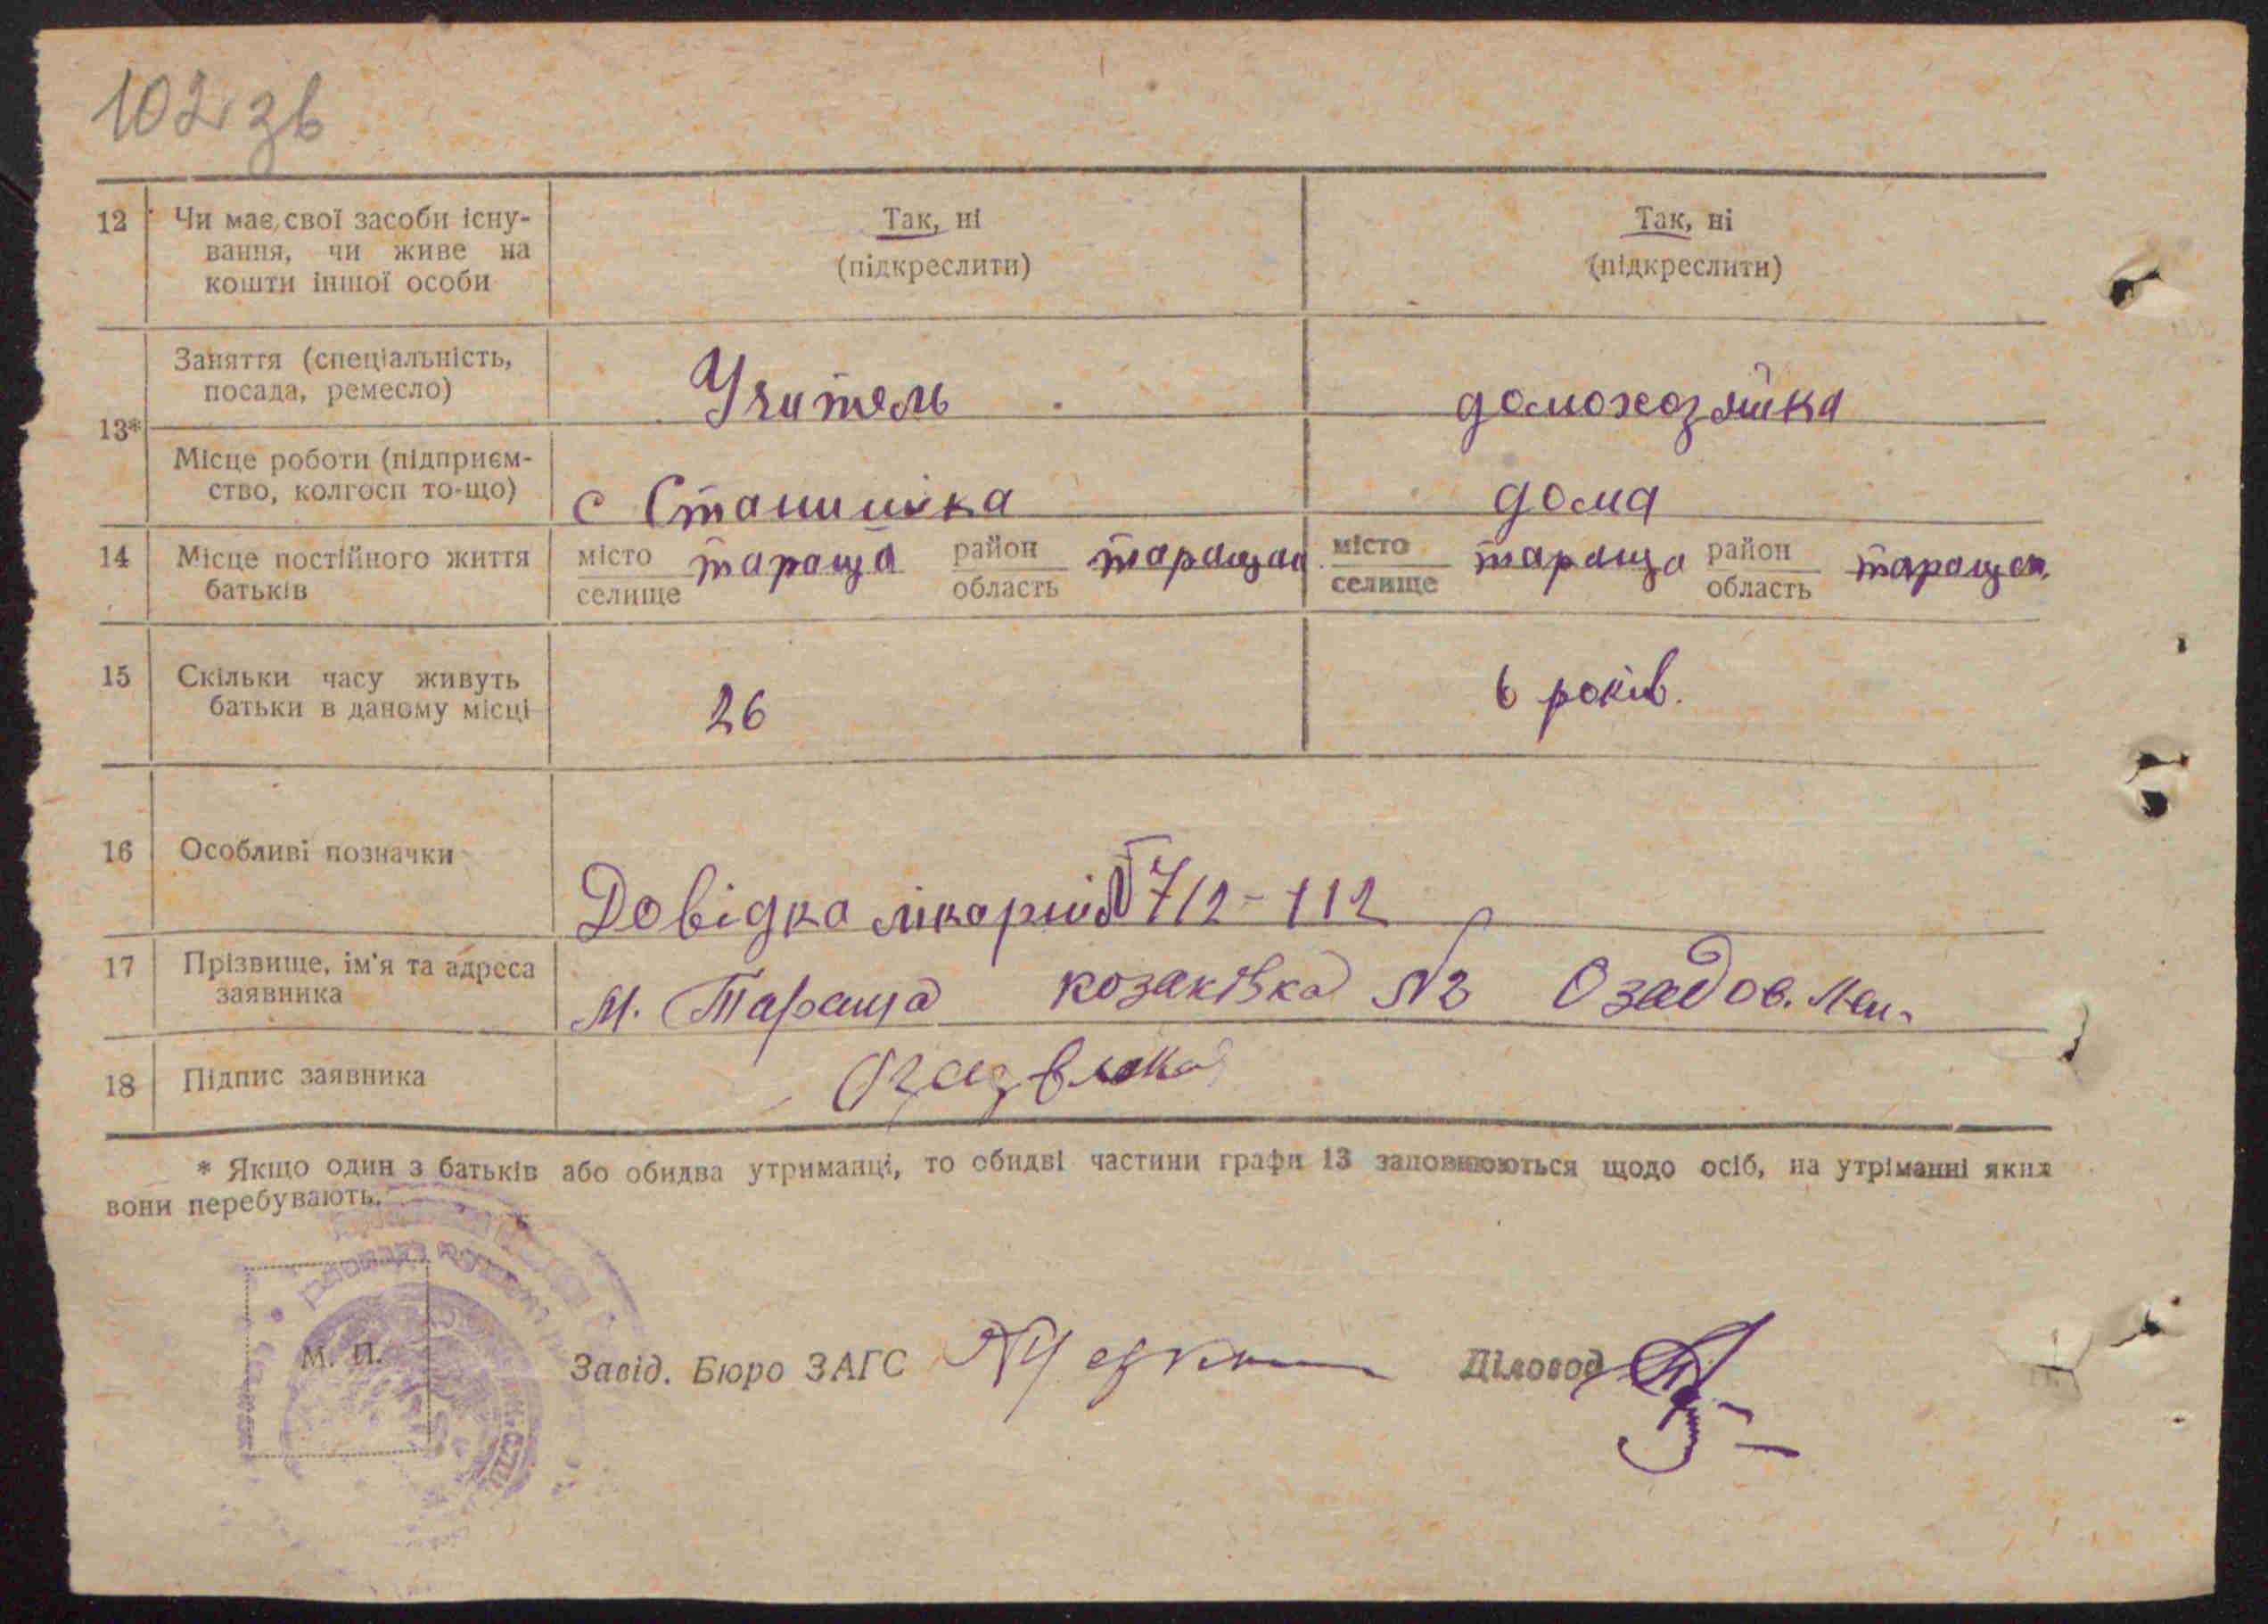 102 зв
12 Чи має свої засоби існу- Так, ні Так, ні
вання, чи живе на (підкреслити) (підкреслити)
кошти іншої особи
13* Заняття (спеціальність, Учитель домохозяйка
посада, ремесло)
Місце роботи (підприєм- с Станишівка дома
ство, колгосп то-що)
14 Місце постійного життя місто тараща район таращан місто тараща район таращан.
батьків селище область селище область
15 Скільки часу живуть 26 6 років.
батьки в даному місці
16 Особливі позначки Довідка лікарні № 712-112
17 Прізвище, ім'я та адреса м. Тараща козаківка №
заявника
18 Підпис заявника
* Якщо один з батьків або обидва утриманці, то обидві частини графи 13 заповнюються щодо осіб, на утріманні яких
вони перебувають.
М. П. Завід. Бюро ЗАГС Діловод